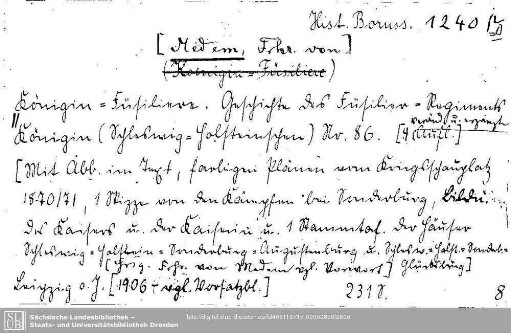 Hist. Boruss. 1240
[Medem, Frhr. von]
(Königin-Füsiliere)
Königin-Füsiliere. Geschichte des Füsilier-Regiments
Königin (Schleswig-Holsteinschen) Nr. 86. [4. Aufl.]
[Mit Abb. im Text, farbigen Plänen vom Kriegsschauplatz
1870/71, 1 Skizze von den Kämpfen bei Sonderburg, Bildn.
des Kaisers u. der Kaiserin u. 1 Stammtaf. der Häuser
Schleswig-Holstein-Sonderburg-Augustenburg u. Schlesw.-Holst.-Sonderb.-
Glücksburg]
[Hrsg. Frhr. von Medem vgl. Vorwort]
Leipzig o. J. [1906 - vgl. Vorsatzbl.] 231 S. 8
Sächsische Landesbibliothek –
Staats- und Universitätsbibliothek Dresden